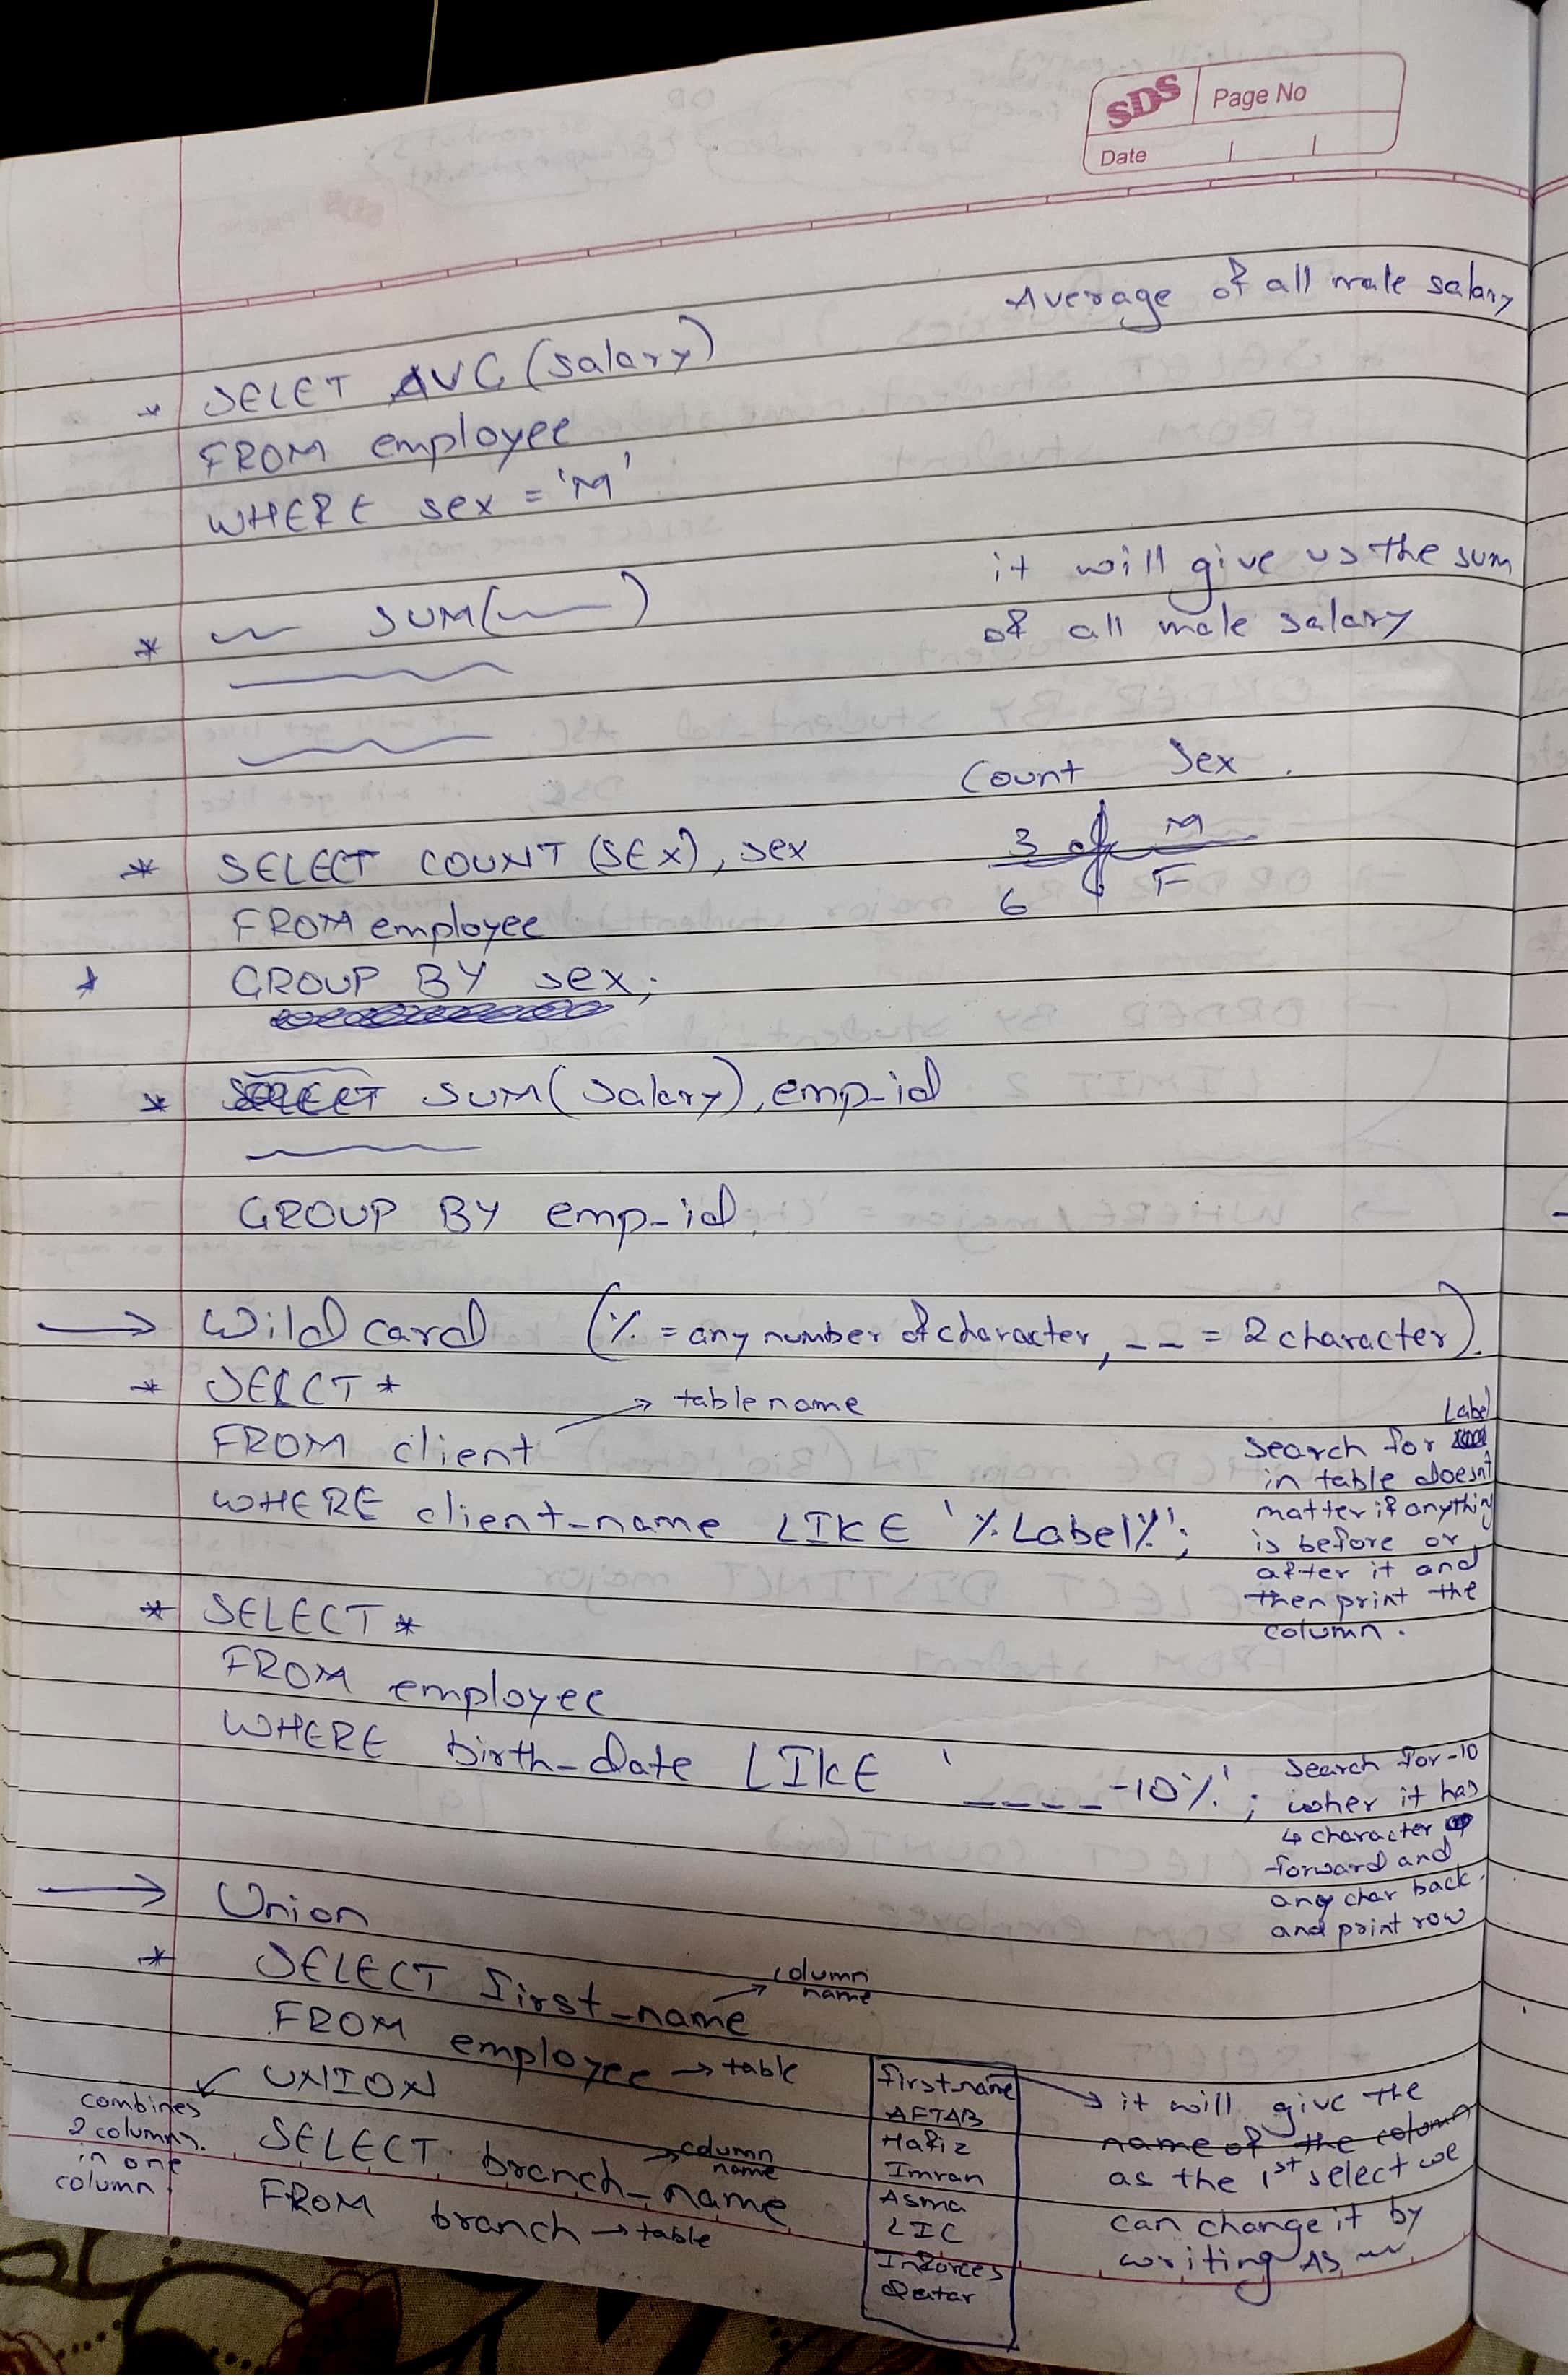 SDS Page No
Date
Average of all male salary
* SELET AVG (salary)
FROM employee
WHERE sex = 'M'
it will give us the sum
* SUM( )
of all male salary
Count Sex
* SELECT COUNT (SEX), sex
3 M
FROM employee
6 F
* GROUP BY sex;
* SELECT SUM(salary), emp_id
GROUP BY emp_id.
→ Wild card (% = any number of character, _ _ = 2 character).
* SELCT *
→ table name
FROM client
WHERE client_name LIKE '%Label%';
Label
Search for
in table doesn't
matter if anything
is before or
after it and
then print the
column.
* SELECT *
FROM employee
WHERE birth_date LIKE '_ _ _ _-10%';
Search for -10
wher it has
4 character
forward and
any char back.
and print row
→ Union
* SELECT first_name → column name
FROM employee → table
UNION
combines
2 columns.
in one
column
SELECT branch_name → column name
FROM branch → table
first_name
AFTAB
Hafiz
Imran
Asma
LIC
Inforces
Qatar
→ it will give the
name of the column
as the 1st select we
can change it by
writing AS